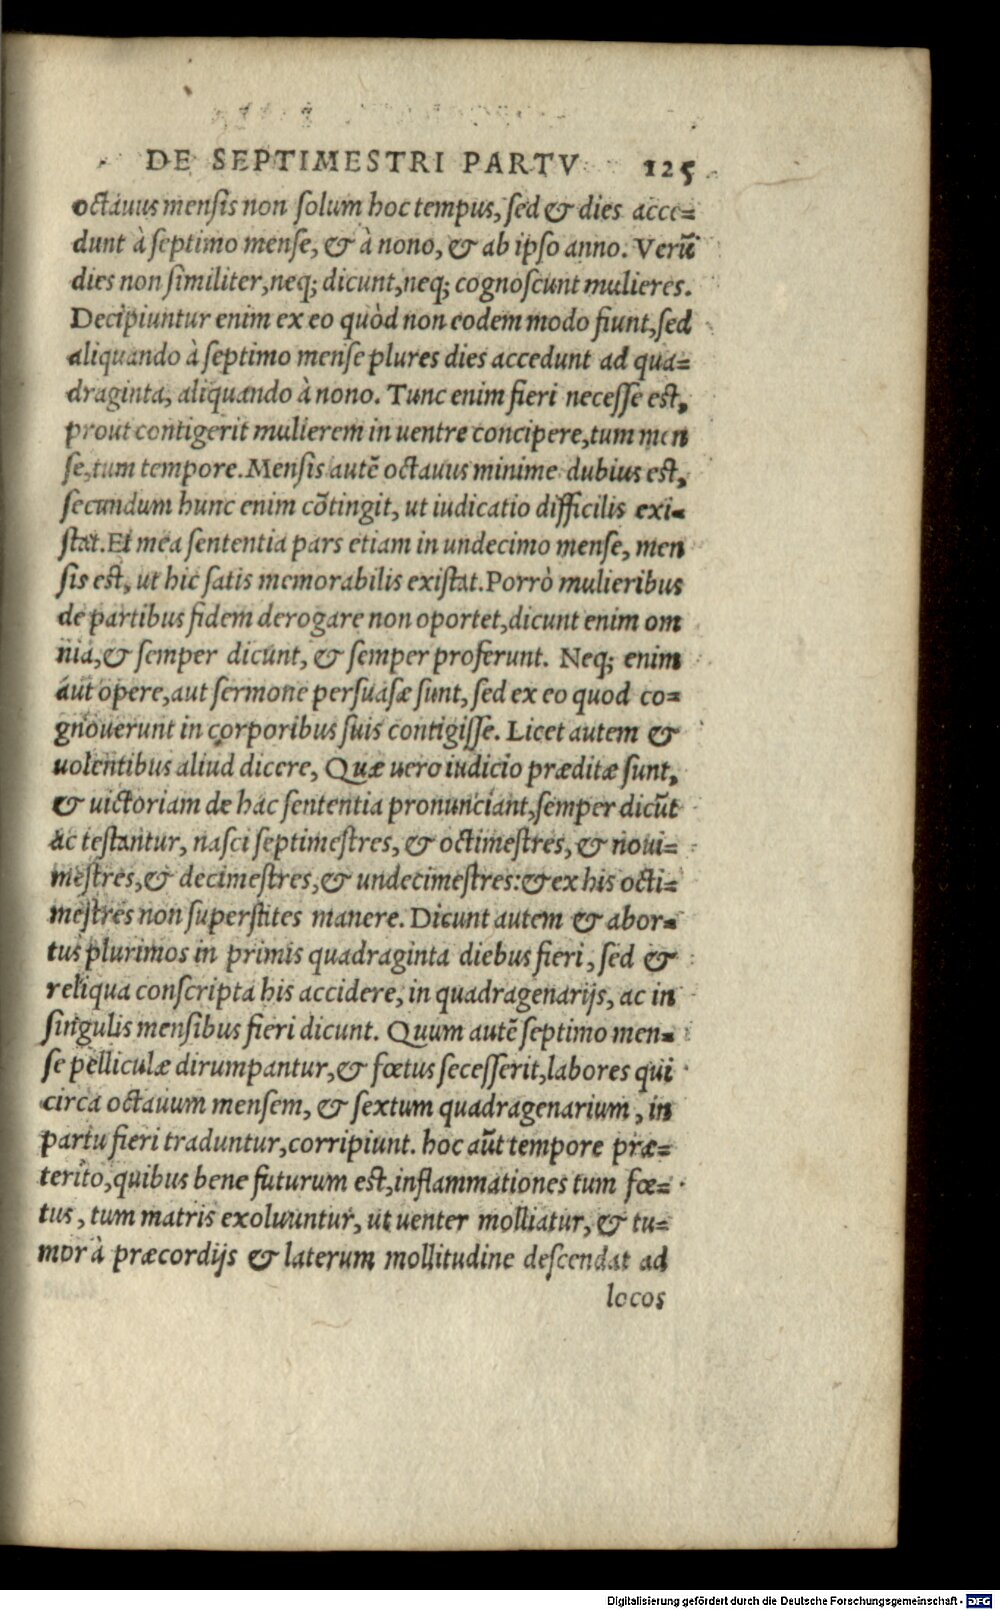 DE SEPTIMESTRI PARTV 125
octauus mensis non solum hoc tempus, sed & dies acce=
dunt à septimo mense, & à nono, & ab ipso anno. Verũ
dies non similiter, neq; dicunt, neq; cognoscunt mulieres.
Decipiuntur enim ex eo quòd non eodem modo fiunt, sed
aliquando à septimo mense plures dies accedunt ad qua=
draginta, aliquando à nono. Tunc enim fieri necesse est,
prout contigerit mulierem in uentre concipere, tum men
se, tum tempore. Mensis autẽ octauus minime dubius est,
secundum hunc enim cõtingit, ut iudicatio difficilis exi=
stat. Et mea sententia pars etiam in undecimo mense, men
sis est, ut hic satis memorabilis existat. Porrò mulieribus
de partibus fidem derogare non oportet, dicunt enim om
nia, & semper dicunt, & semper proferunt. Neq; enim
aut opere, aut sermone persuasæ sunt, sed ex eo quod co=
gnouerunt in corporibus suis contigisse. Licet autem &
uolentibus aliud dicere, Quæ uero iudicio præditæ sunt,
& uictoriam de hac sententia pronunciant, semper dicũt
ac testantur, nasci septimestres, & octimestres, & noui=
mestres, & decimestres, & undecimestres: & ex his octi=
mestres non superstites manere. Dicunt autem & abor=
tus plurimos in primis quadraginta diebus fieri, sed &
reliqua conscripta his accidere, in quadragenarijs, ac in
singulis mensibus fieri dicunt. Quum autẽ septimo men=
se pelliculæ dirumpantur, & fœtus secesserit, labores qui
circa octauum mensem, & sextum quadragenarium, in
partu fieri traduntur, corripiunt. hoc aũt tempore præ=
terito, quibus bene futurum est, inflammationes tum fœ=
tus, tum matris exoluuntur, ut uenter molliatur, & tu=
mor à præcordijs & laterum mollitudine descendat ad
locos
Digitalisierung gefördert durch die Deutsche Forschungsgemeinschaft - DFG